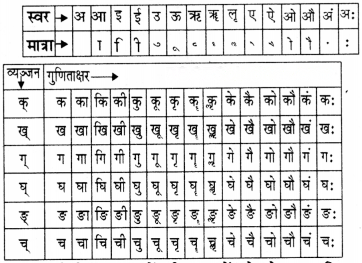 स्वर → अ आ इ ई उ ऊ ऋ ॠ लृ ए ऐ ओ औ अं अः
मात्रा → ा ि ी ु ू ृ ॄ ॢ े ै ो ौ ं ः
व्यञ्जन गुणिताक्षर →
क् क का कि की कु कू कृ कॄ कॢ के कै को कौ कं कः
ख् ख खा खि खी खु खू खृ खॄ खॢ खे खै खो खौ खं खः
ग् ग गा गि गी गु गू गृ गॄ गॢ गे गै गो गौ गं गः
घ् घ घा घि घी घु घू घृ घॄ घॢ घे घै घो घौ घं घः
ङ् ङ ङा ङि ङी ङु ङू ङृ ङॄ ङॢ ङे ङै ङो ङौ ङं ङः
च् च चा चि ची चु चू चृ चॄ चॢ चे चै चो चौ चं चः